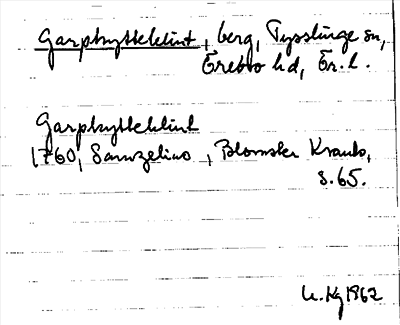 Garphytteklint, berg, Tysslinge sn,
Örebro hd, Ör. l.
Garphytteklint
1760, Samzelius, Blomster Krants,
s. 65.
1962